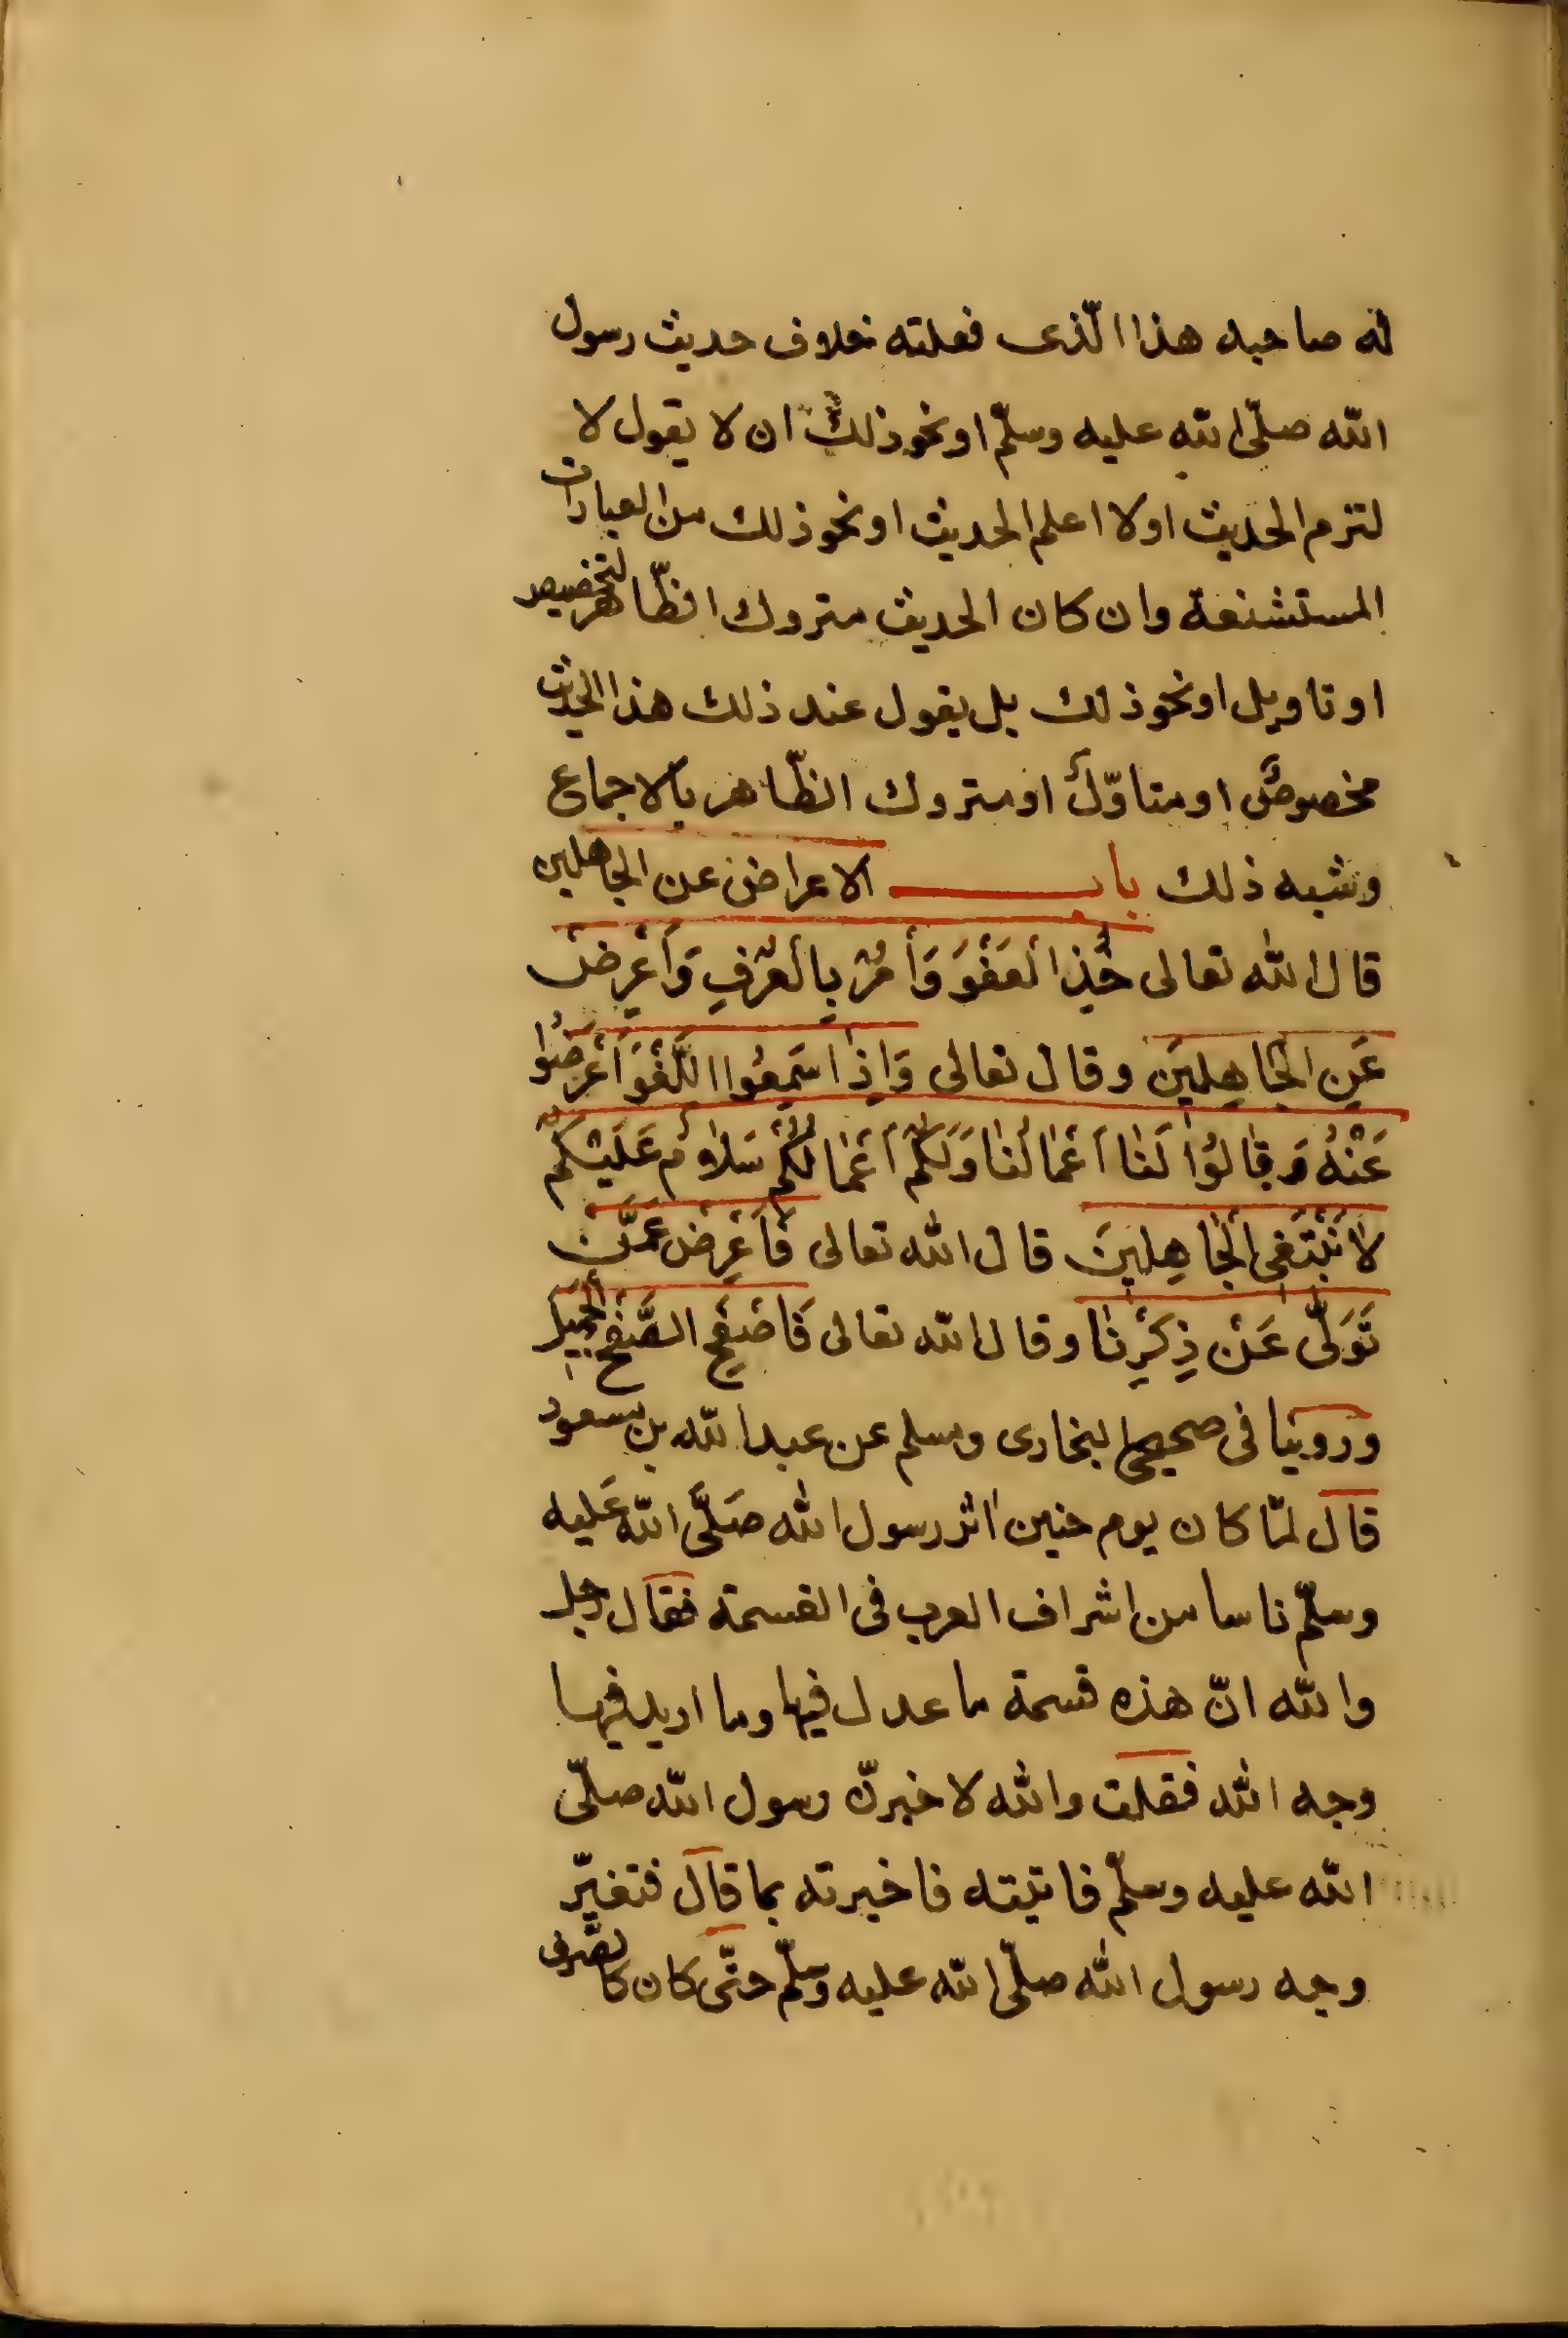 له صاحبه هذا الّذى فعلته خلاف حديث رسول
الله صلّى الله عليه وسلّم او نحو ذلك ان لا يقول لا
لتزم الحديث او لا اعلم الحديث او نحو ذلك من العبارات
المستشنعة وان كان الحديث متروك الظّاهر لتخصيص
او تاويل او نحو ذلك بل يقول عند ذلك هذا الحديث
مخصوصٌ او متاوّلٌ او متروك الظّاهر بالاجماع
وشبه ذلك باب الاعراض عن الجاهلين
قال الله تعالى خُذِ الْعَفْوَ وَأْمُرْ بِالْعُرْفِ وَاَعْرِضْ
عَنِ الْجَاهِلِينَ وقال تعالى وَاِذَا سَمِعُوا اللَّغْوَ اَعْرَضُوا
عَنْهُ وَقَالُوا لَنَا اَعْمَالُنَا وَلَكُمْ اَعْمَالُكُمْ سَلَامٌ عَلَيْكُمْ
لَا نَبْتَغِى الْجَاهِلِينَ قال الله تعالى فَاَعْرِضْ عَمَّنْ
تَوَلَّى عَنْ ذِكْرِنَا وقال الله تعالى فَاصْفَحِ الصَّفْحَ الْجَمِيلَ
وروينا فى صحيحى البخارى ومسلم عن عبد الله بن مسعود
قال لمّا كان يوم حنين اثر رسول الله صَلَّى الله عَليه
وسلّم ناسا من اشراف العرب فى القسمة فقال رجل
والله انّ هذه قسمة ما عدل فيها وما اريد فيها
وجه الله فقلت والله لاخبرنّ رسول الله صلّى
الله عليه وسلّم فاتيته فاخبرته بما قال فتغيّر
وجه رسول الله صلّى الله عليه وسلّم حتّى كان كالصّرف